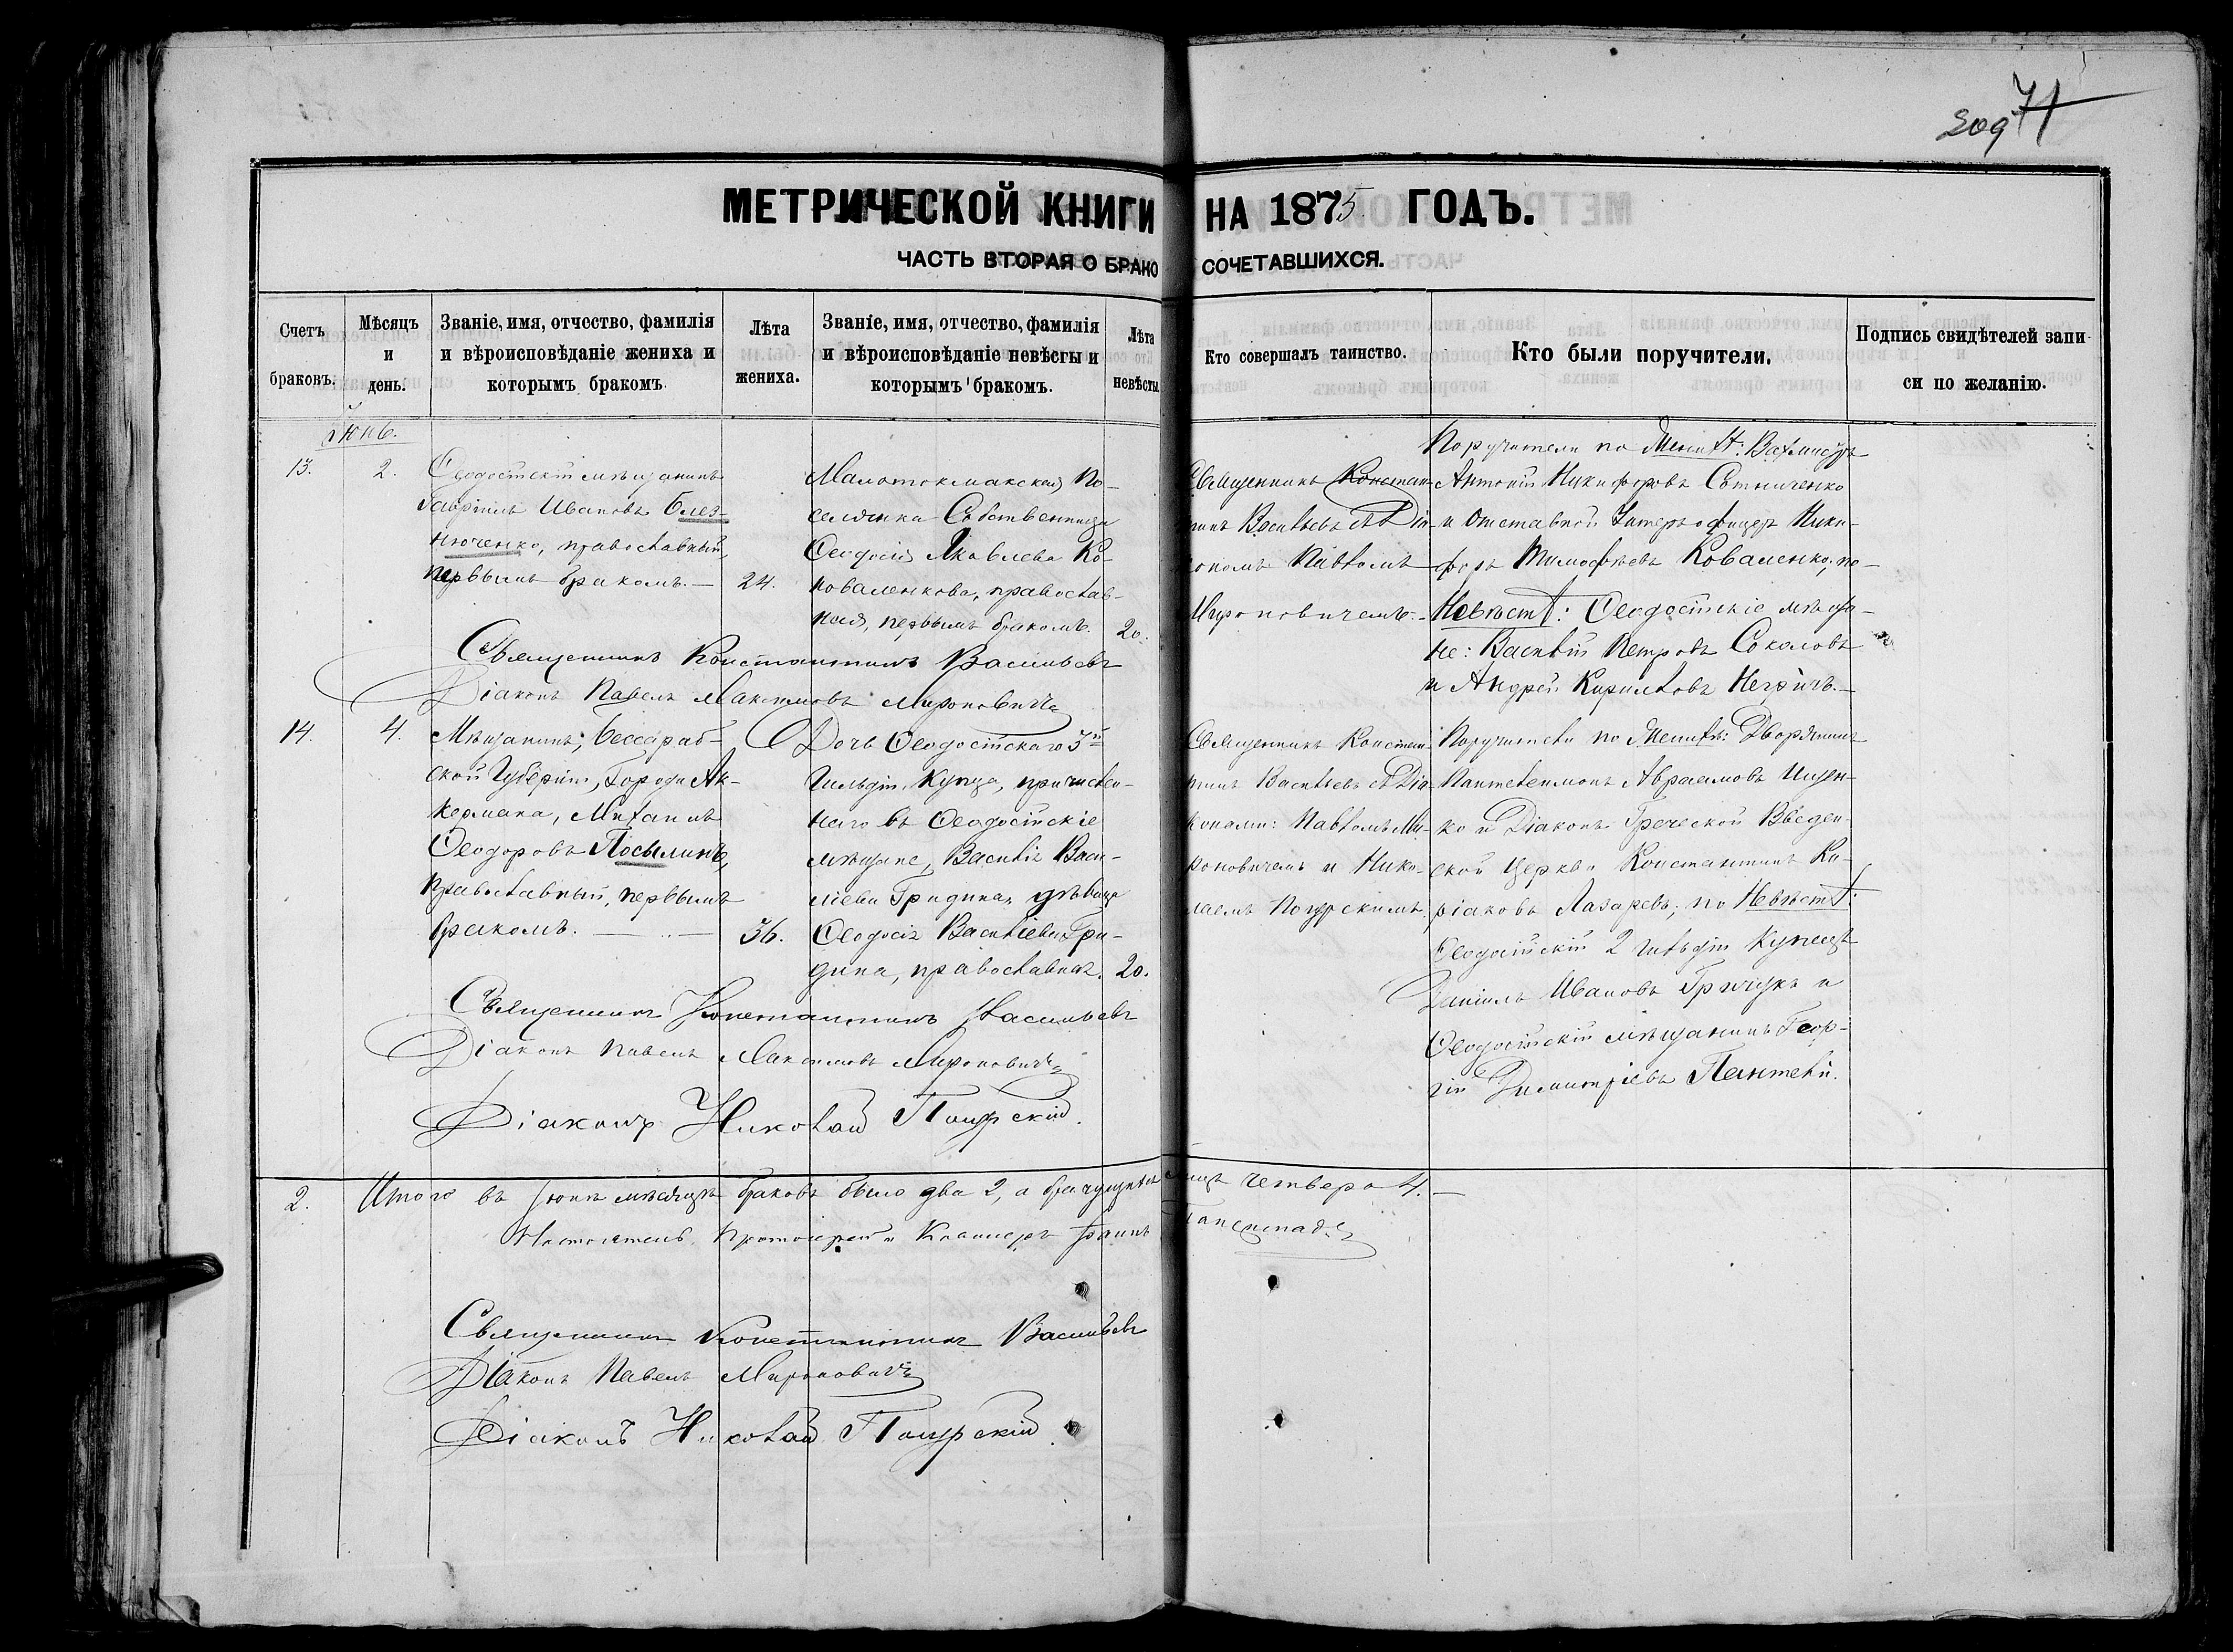 209 71
МЕТРИЧЕСКОЙ КНИГИ НА 1875 ГОДЪ.
ЧАСТЬ ВТОРАЯ О БРАКОСОЧЕТАВШИХСЯ.
Счетъ браковъ.
Мѣсяцъ и день.
Званіе, имя, отчество, фамилія
и вѣроисповѣданіе жениха и
которымъ бракомъ.
Лѣта
жениха.
Званіе, имя, отчество, фамилія
и вѣроисповѣданіе невѣсты и
которымъ бракомъ.
Лѣта
невѣсты.
Кто совершалъ таинство.
Кто были поручители.
Подпись свидѣтелей запи-
си по желанію.
Іюнь.
13.
2.
Ѳеодосійскій мѣщанинъ
Гавріилъ Ивановъ
нюченко, православный,
первымъ бракомъ. —
24.
Малотокмакская По-
селянка Собственница
Ѳеодосія Яковлева Ко-
новаленкова, православ-
ная, первымъ бракомъ.
20.
Священникъ Констан-
тинъ Васильевъ съ Діа-
кономъ Павломъ
Мироновичемъ. —
Поручители по Женихѣ: Вахмистръ
Антоній Никифоровъ Сотниченко
и отставной Унтеръ-офицеръ Ники-
форъ Тимофѣевъ Коваленко; по
Невѣстѣ: Ѳеодосійскіе мѣща-
не: Василій Петровъ Соколовъ
и Андрей Кирилловъ Негричъ. —
Священникъ Константинъ Васильевъ
Діаконъ Павелъ Максимовъ Мироновичъ
14.
4.
Мѣщанинъ, Бессараб-
ской Губерніи, Города Ак-
кермана, Михаилъ
Ѳеодоровъ Посылинъ,
православный, первымъ
бракомъ. —
36.
Дочь Ѳеодосійскаго 3й
Гильдіи Купца, причислен-
наго въ Ѳеодосійскіе
мѣщане, Василія Васи-
ліева Гридина, дѣвица
Ѳеодосія Васильева Гри-
дина, православная.
20.
Священникъ Констан-
тинъ Васильевъ съ Діа-
конами: Павломъ Ми-
роновичемъ и Нико-
лаемъ
Поручители по Женихѣ: Дворянинъ
Пантелеимонъ Авраамовъ Ищен-
ко и Діаконъ Греческой Введен-
ской церкви Константинъ Ки-
ріаковъ Лазаревъ; по Невѣстѣ:
Ѳеодосійскій 2 гильдіи Купецъ
Даніилъ Ивановъ Грищукъ и
Ѳеодосійскій мѣщанинъ Геор-
гій Димитріевъ Пантели.
Священникъ Константинъ Васильевъ
Діаконъ Павелъ Максимовъ Мироновичъ
Діаконъ Николай
2.
Итого въ Іюнѣ мѣсяцѣ браковъ было два 2, а брачущихся лицъ четверо 4. —
Настоятель, Протоіерей и Кавалеръ Іоаннъ
Священникъ Константинъ Васильевъ
Діаконъ Павелъ Мироновичъ
Діаконъ Николай